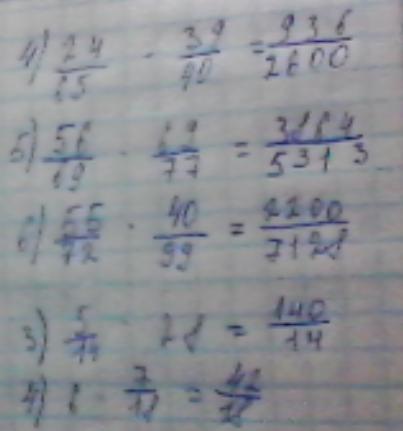 4) 24/65 · 39/40 = 936/2600
5) 56/69 · 69/77 = 3864/5313
6) 55/72 · 40/99 = 2200/7128
3) 5/14 · 28 = 140/14
4) 6 · 7/18 = 42/18